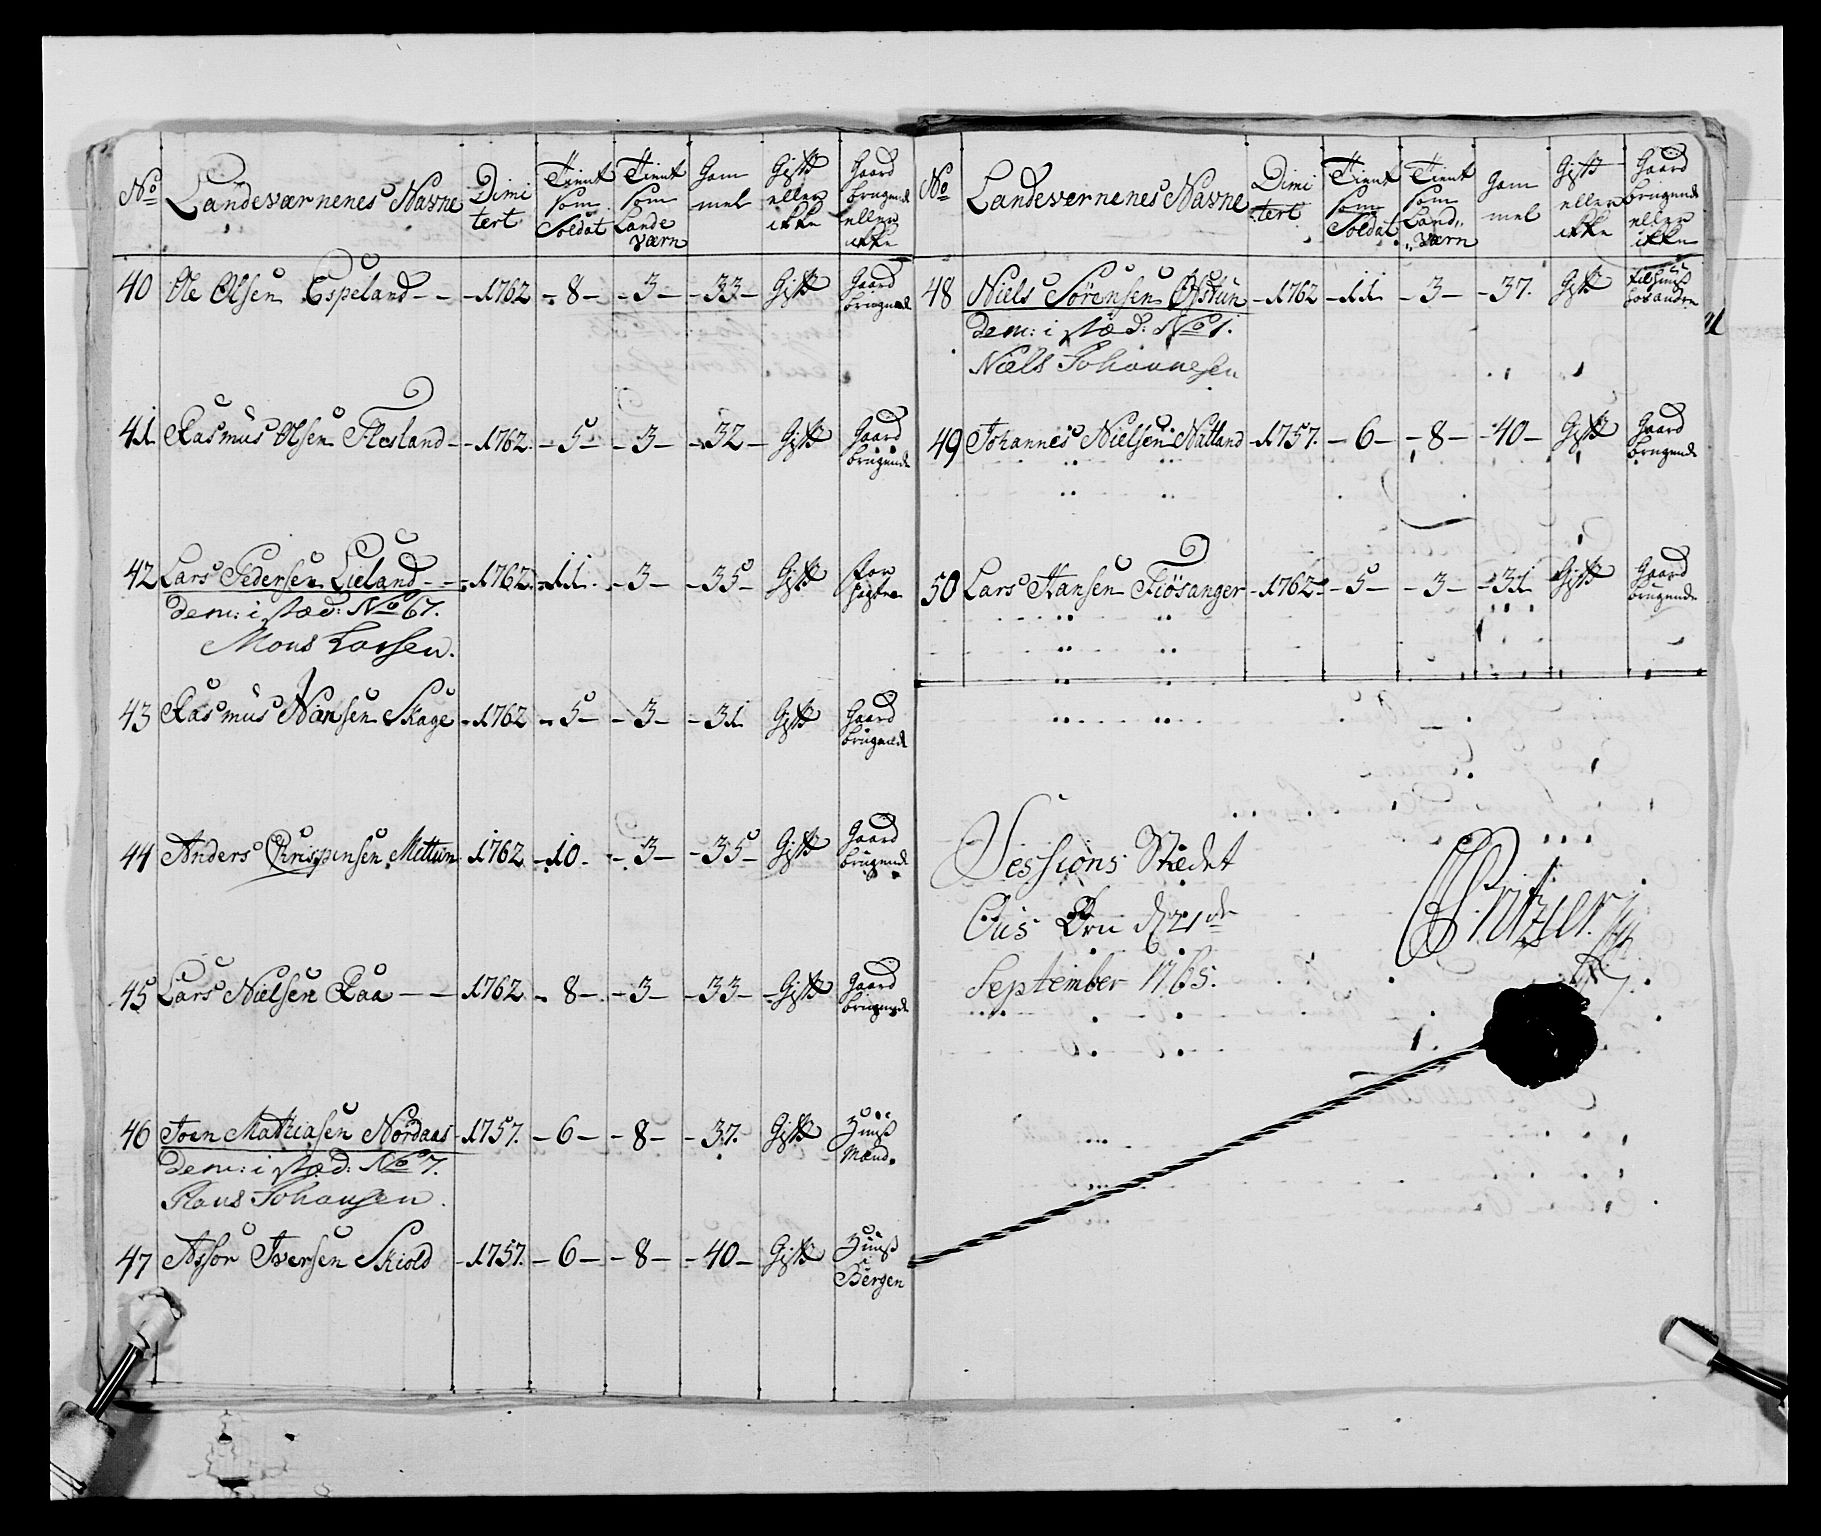 No Landeværnenes Navne Dimitert Tient som Soldat Tient som Lande værn Gammel Gift eller ikke Gaard brugende eller ikke
40 Ole Olsen Espeland - - 1762 - 8 - - 3 - - 33 - Gift Gaard brugende
41 Rasmus Olsen Flesland - 1762. - 5 - - 3 - - 32 - Gift Gaard brugende
42 Lars Pedersen Lieland - - 1762. - 11. - 3 - - 35 - Gift
Dem: i stæd: No 67.
Mons Larsen.
43 Rasmus Hansen Skage - 1762 - 5 - - 3 - - 31 Gift Gaard brugende
44 Anders Chrispinsen Mittun - 1762 - 10. - 3 - - 35 - Gift Gaard brugende
45 Lars Nielsen Raa - - 1762 - 8 - - 3 - - 33 - Gift Gaard brugende
46 Joen Mathiasen Nordaas - 1757. - 6 - - 8 - - 37. Gift Huuß Mænd.
Dem: i stæd: No 7.
Hans Johansen.
47 Assor Iversen Skiold - 1757. - 6 - - 8 - - 40 - Gift Huuß i Bergen
No Landevernenes Navne Dimitert Tient som Soldat Tient som Land værn Gammel Gift eller ikke Gaard brugende eller ikke
48 Niels Sørensen Øvstun - 1762 - 11. - 3 - - 37. Gift til Huuß hos andre
Dem: i stæd: No 1.
Niels Johannesen
49 Johannes Nielsen Natland - 1757. - 6 - - 8 - - 40 - Gift Gaard brugende
50 Lars Hansen Tiösanger - 1762 - 5 - - 3 - - 31 Gift Gaard brugende
Sessions Stædet
Øren d 21de
September 1765.